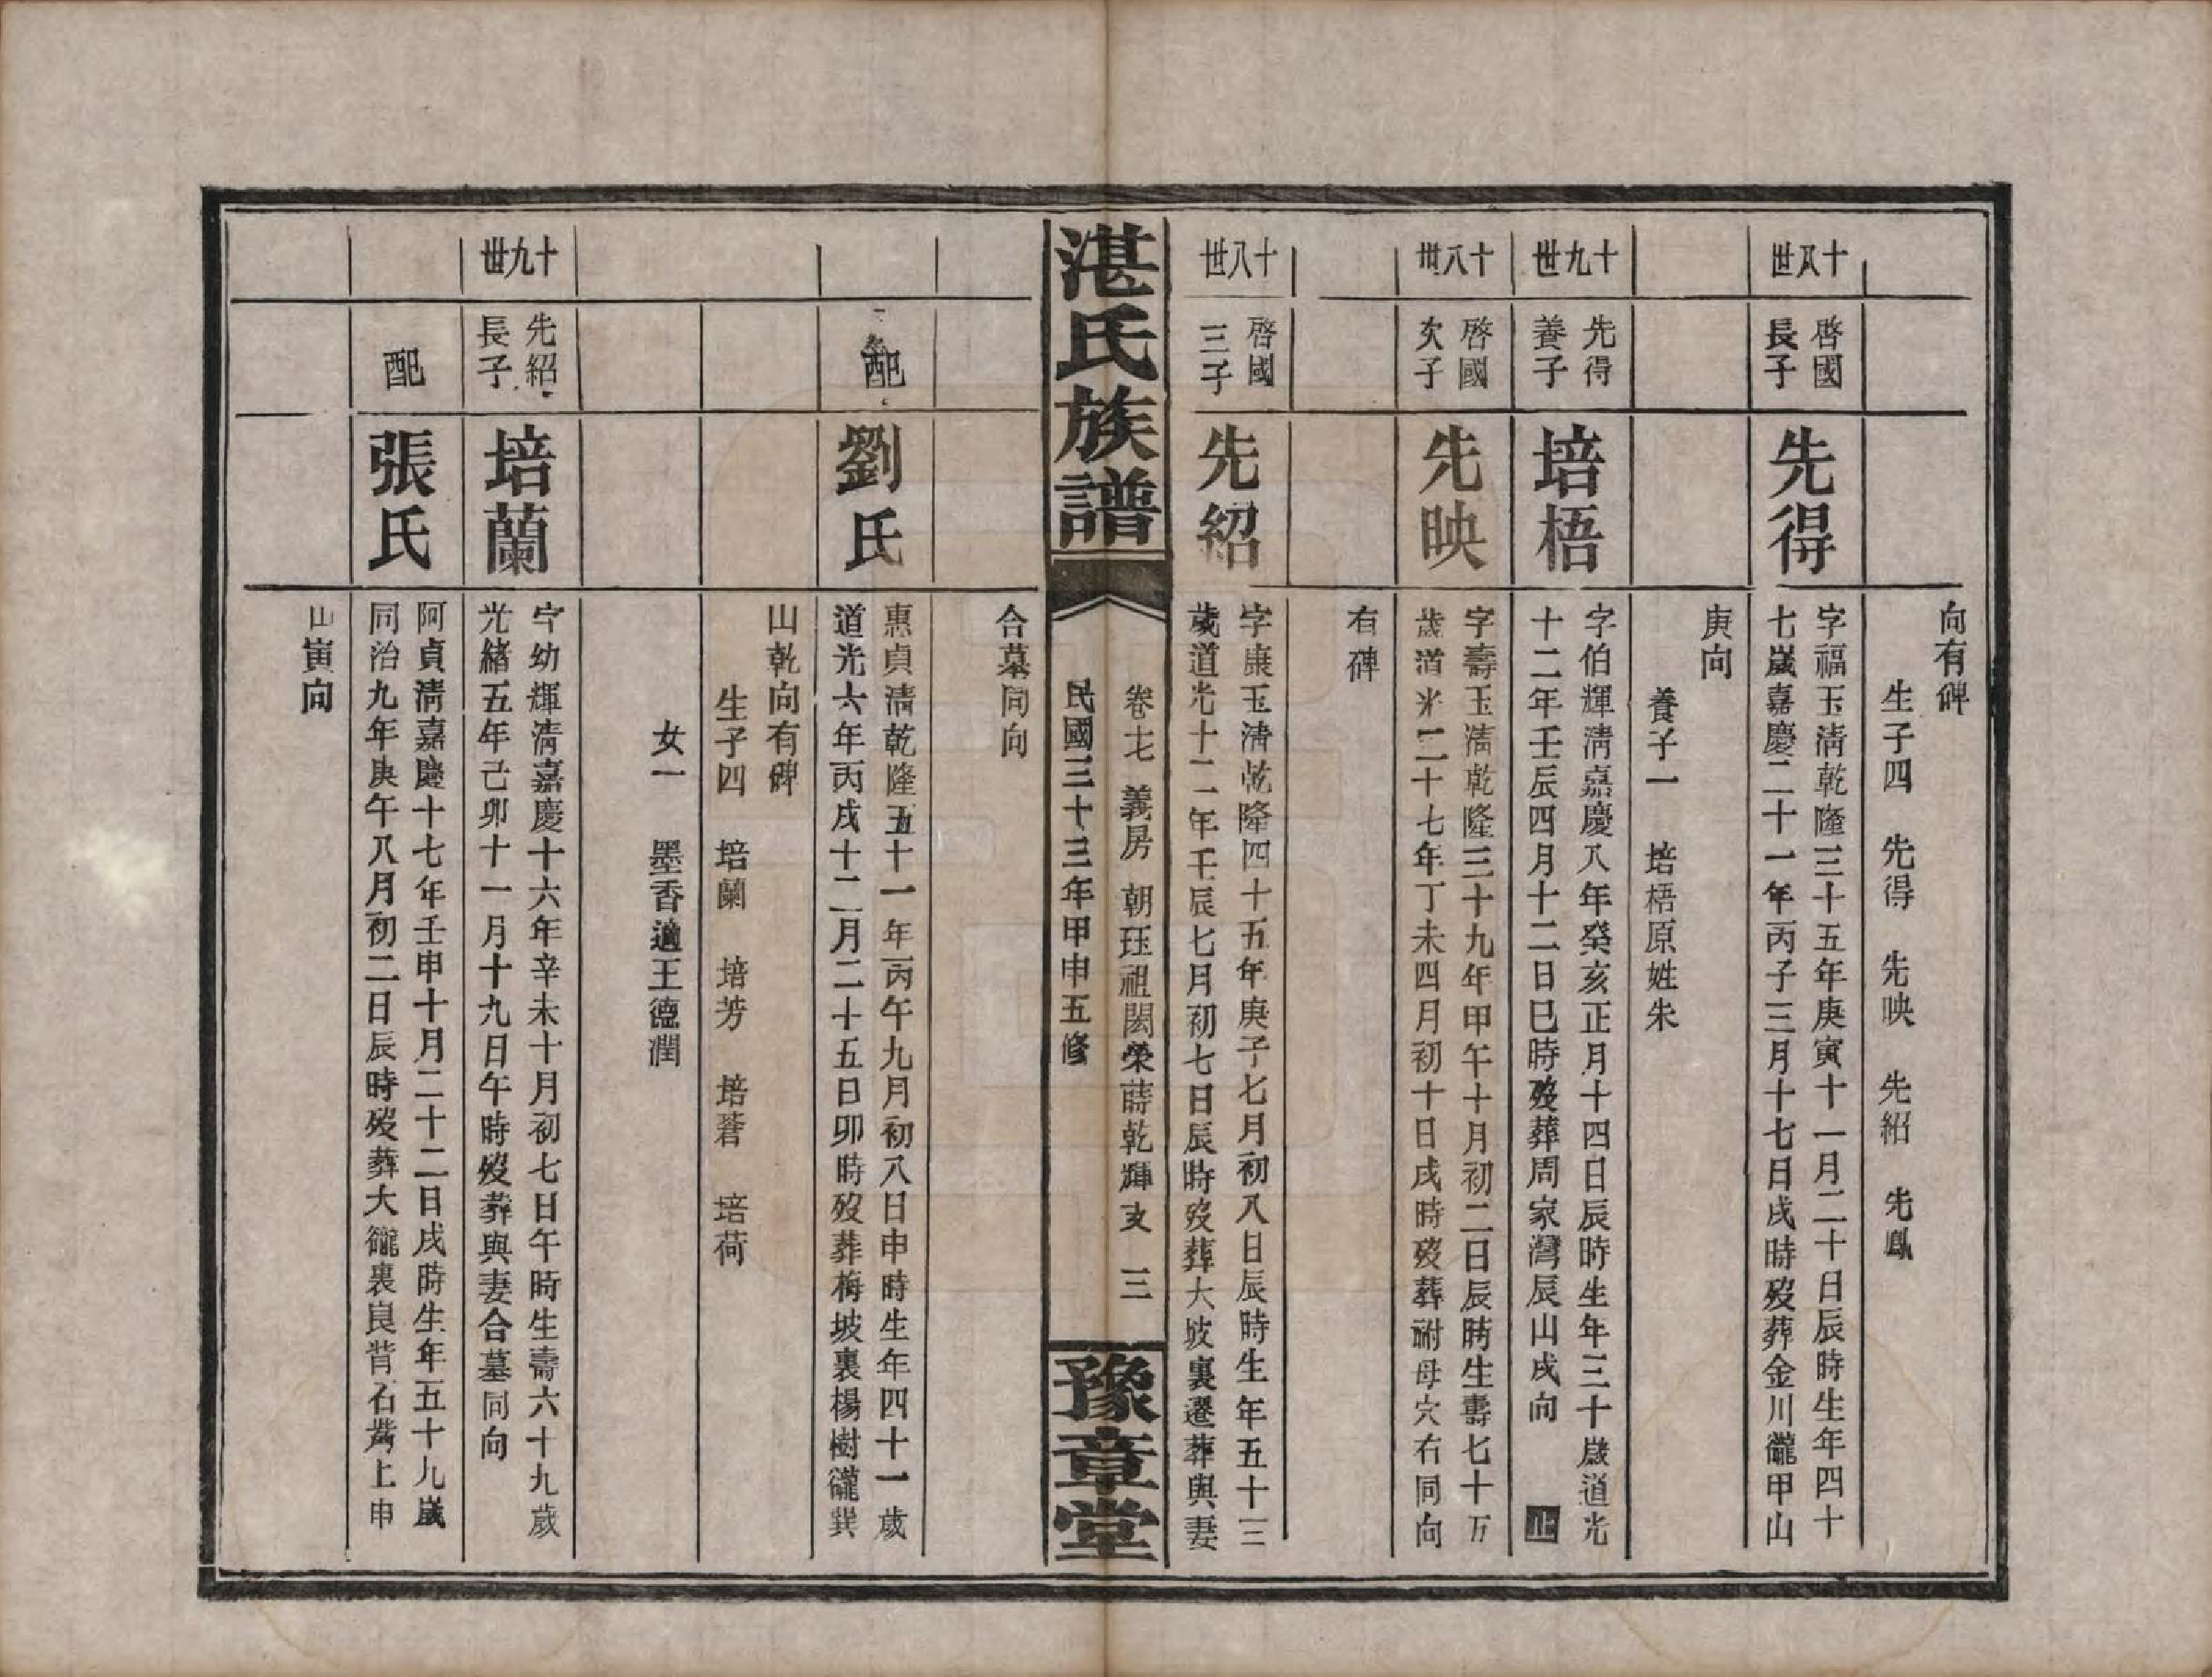 向有碑
生子四　先得　先映　先紹　先鳳
十八世
啓國長子
先得
字福玉清乾隆三十五年庚寅十一月二十日辰時生年四十
七歲嘉慶二十一年丙子三月十七日戌時歿葬金川瓏甲山
庚向
養子一　培梧原姓朱
十九世
先得養子
培梧
字伯輝清嘉慶八年癸亥正月十四日辰時生年三十歲道光
十二年壬辰四月十二日巳時歿葬周家灣辰山戌向　止
十八世
啓國次子
先映
字壽玉清乾隆三十九年甲午十月初二日辰時生壽七十万
歲道光二十七年丁未四月初十日戌時歿葬祔母穴右同向
有碑
十八世
啓國三子
先紹
字康玉清乾隆四十五年庚子七月初八日辰時生年五十三
歲道光十二年壬辰七月初七日辰時歿葬大坡裏遷葬與妻
湛氏族譜
卷七　義房　朝珏祖閎榮蒔乾輝支　三
民國三十三年甲申五修
豫章堂
合墓同向
配
劉氏
惠貞清乾隆五十一年丙午九月初八日申時生年四十一歲
道光六年丙戌十二月二十五日卯時歿葬梅坡裏楊樹瓏巽
山乾向有碑
生子四　培蘭　培芳　培蒼　培荷
女一　墨香適王德潤
十九世
先紹長子
培蘭
字幼輝清嘉慶十六年辛未十月初七日午時生壽六十九歲
光緒五年己卯十一月十九日午時歿葬與妻合墓同向
配
張氏
阿貞清嘉慶十七年壬申十月二十二日戌時生年五十九歲
同治九年庚午八月初二日辰時歿葬大瓏裏艮背石嘴上申
山寅向